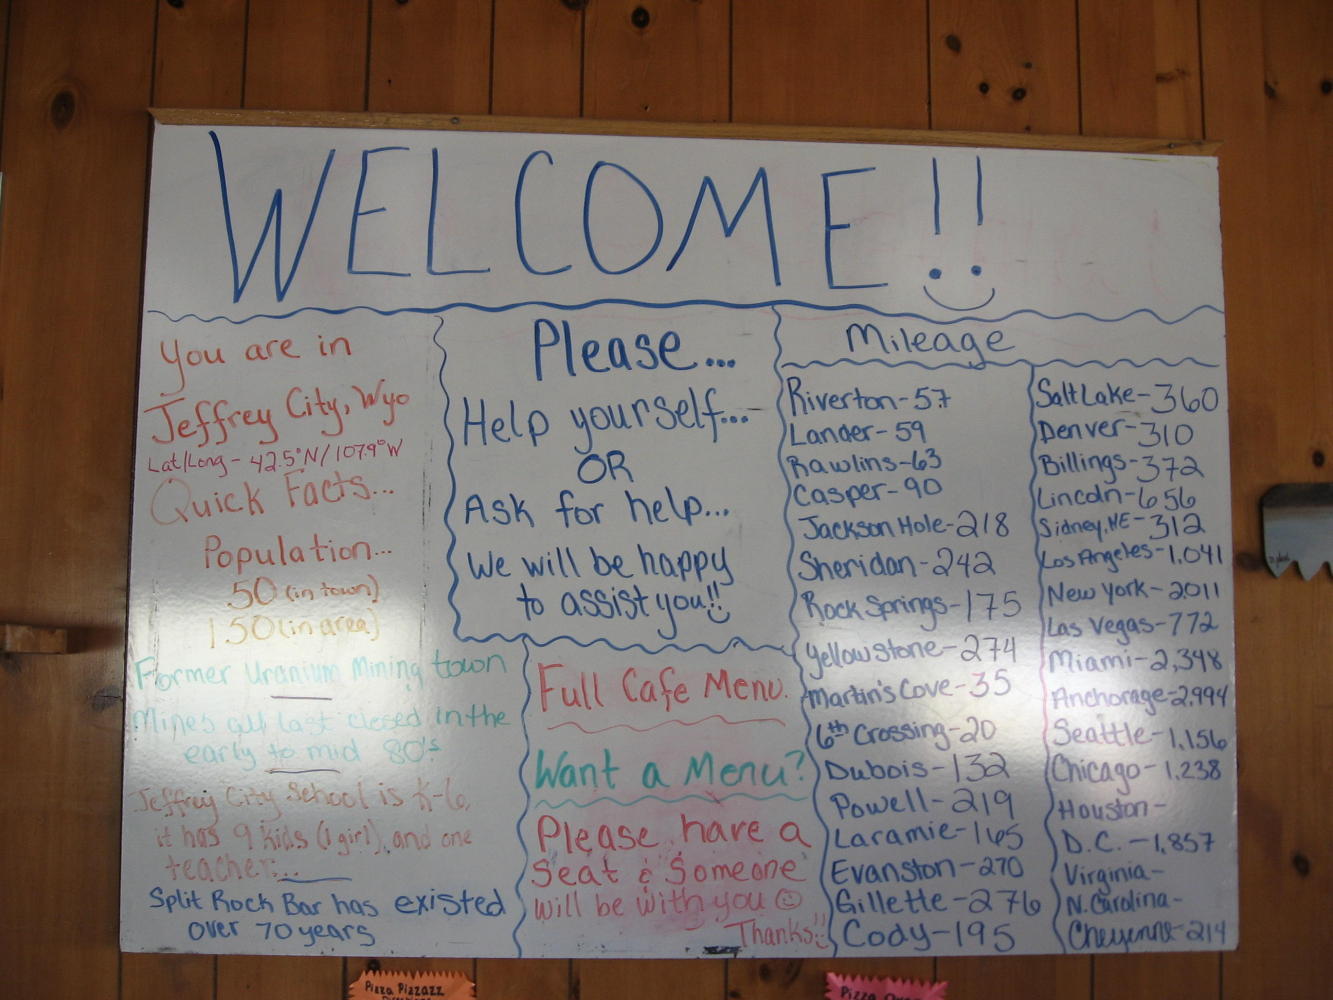 WELCOME!!
You are in
Jeffrey City, Wyo
Lat/Long - 42.5°N/107.9°W
Quick Facts...
Population...
50 (in town)
150 (in area)
Former Uranium Mining town
Mines all last closed in the
early to mid 80's
Jeffrey City School is K-6,
it has 9 kids (1 girl), and one
teacher...
Split Rock Bar has existed
over 70 years
Please...
Help yourself...
OR
Ask for help...
We will be happy
to assist you!!
Full Cafe Menu.
Want a Menu?
Please have a
Seat & Someone
will be with you
Thanks!!
Mileage
Riverton-57
Lander-59
Rawlins-63
Casper-90
Jackson Hole-218
Sheridan-242
Rock Springs-175
Yellowstone-274
Martin's Cove-35
6th Crossing-20
Dubois-132
Powell-219
Laramie-165
Evanston-270
Gillette-276
Cody-195
Salt Lake-360
Denver-310
Billings-372
Lincoln-656
Sidney, NE-312
Los Angeles-1,041
New York-2011
Las Vegas-772
Miami-2,348
Anchorage-2,994
Seattle-1,156
Chicago-1,238
Houston-
D.C.-1,857
Virginia-
N. Carolina-
Cheyenne-214
Pizza Pizzazz
Pizza